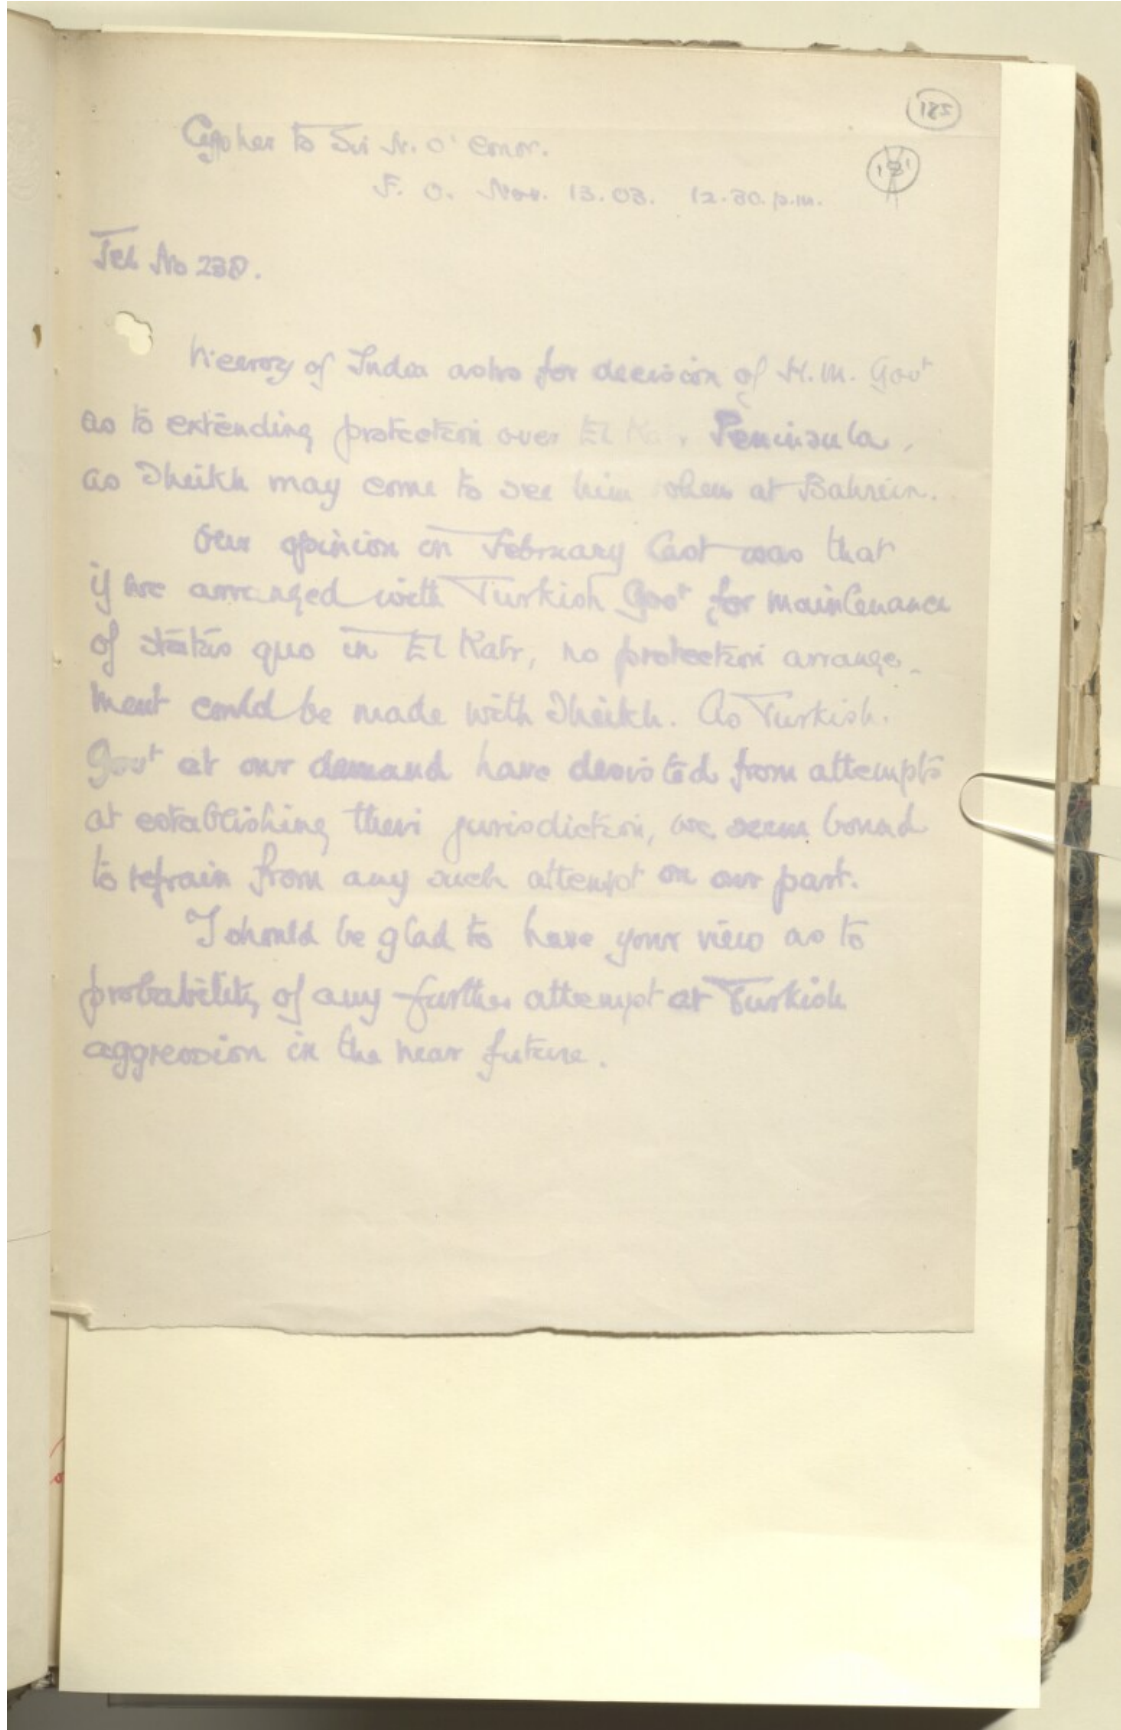 185
Cypher to Sir N. O'Conor.
F. O. Nov. 13. 03. 12.30. p.m.
Tel No 238.
Viceroy of India asks for decision of H.M. Govt
as to extending protection over El Katr Peninsula,
as Sheikh may come to see him when at Bahrein.
Our opinion in February last was that
if we arranged with Turkish Govt for maintenance
of status quo in El Katr, no protection arrange-
ment could be made with Sheikh. As Turkish
Govt at our demand have desisted from attempts
at establishing their jurisdiction, we seem bound
to refrain from any such attempt on our part.
I should be glad to have your view as to
probability of any further attempt at Turkish
aggression in the near future.